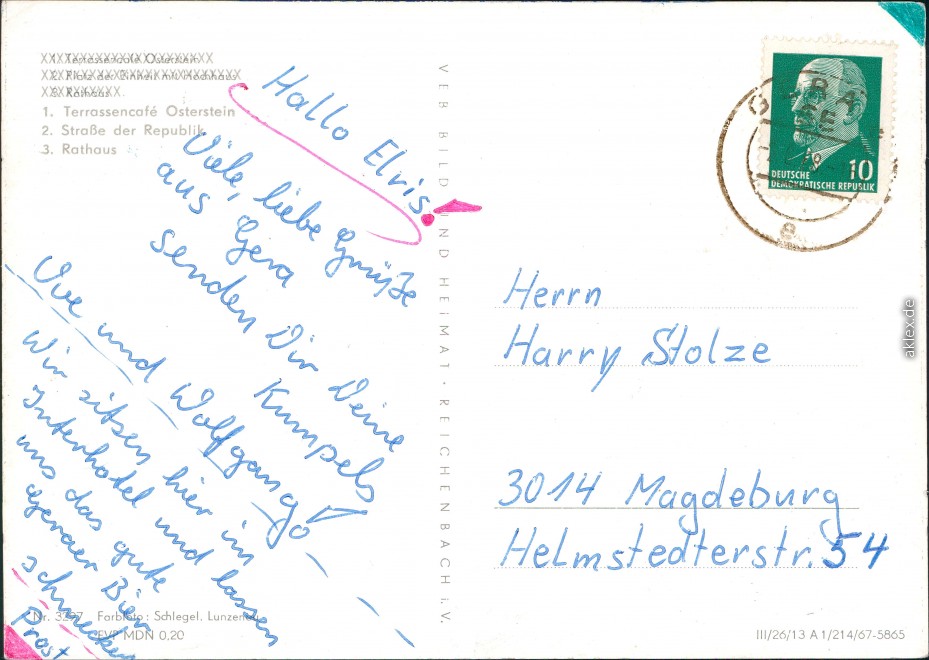 1. Terrassencafé Osterstein
2. Platz der Einheit mit Hochhaus
3. Rathaus
1. Terrassencafé Osterstein
2. Straße der Republik
3. Rathaus
Hallo Elvis!
Viele, liebe Grüße
aus Gera
senden Dir Deine
Kumpels
Uwe und Wolfgang
Wir sitzen hier im
Interhotel und lassen
uns das gute
Geraer Bier
schmecken
Prost
Nr. 3297 Farbfoto: Schlegel, Lunzenau
EVP MDN 0,20
VEB BILD UND HEIMAT · REICHENBACH i. V.
GERA
10
DEUTSCHE
DEMOKRATISCHE REPUBLIK
Herrn
Harry Stolze
3014 Magdeburg
Helmstedterstr. 54
III/26/13 A 1/214/67-5865
aklex.de